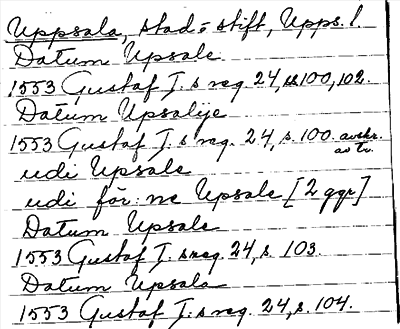 Uppsala, stad o stift, Upps. l.
Datum Upsale
1553 Gustaf I:s reg. 24, s. 100, 102.
Datum Upsalije
1553 Gustaf I:s reg. 24, s. 100. avskr. av tr.
udi Upsale
udi för:ne Upsale [2 ggr]
Datum Upsale
1553 Gustaf I:s reg. 24, s. 103.
Datum Upsala
1553 Gustaf I:s reg. 24, s. 104.